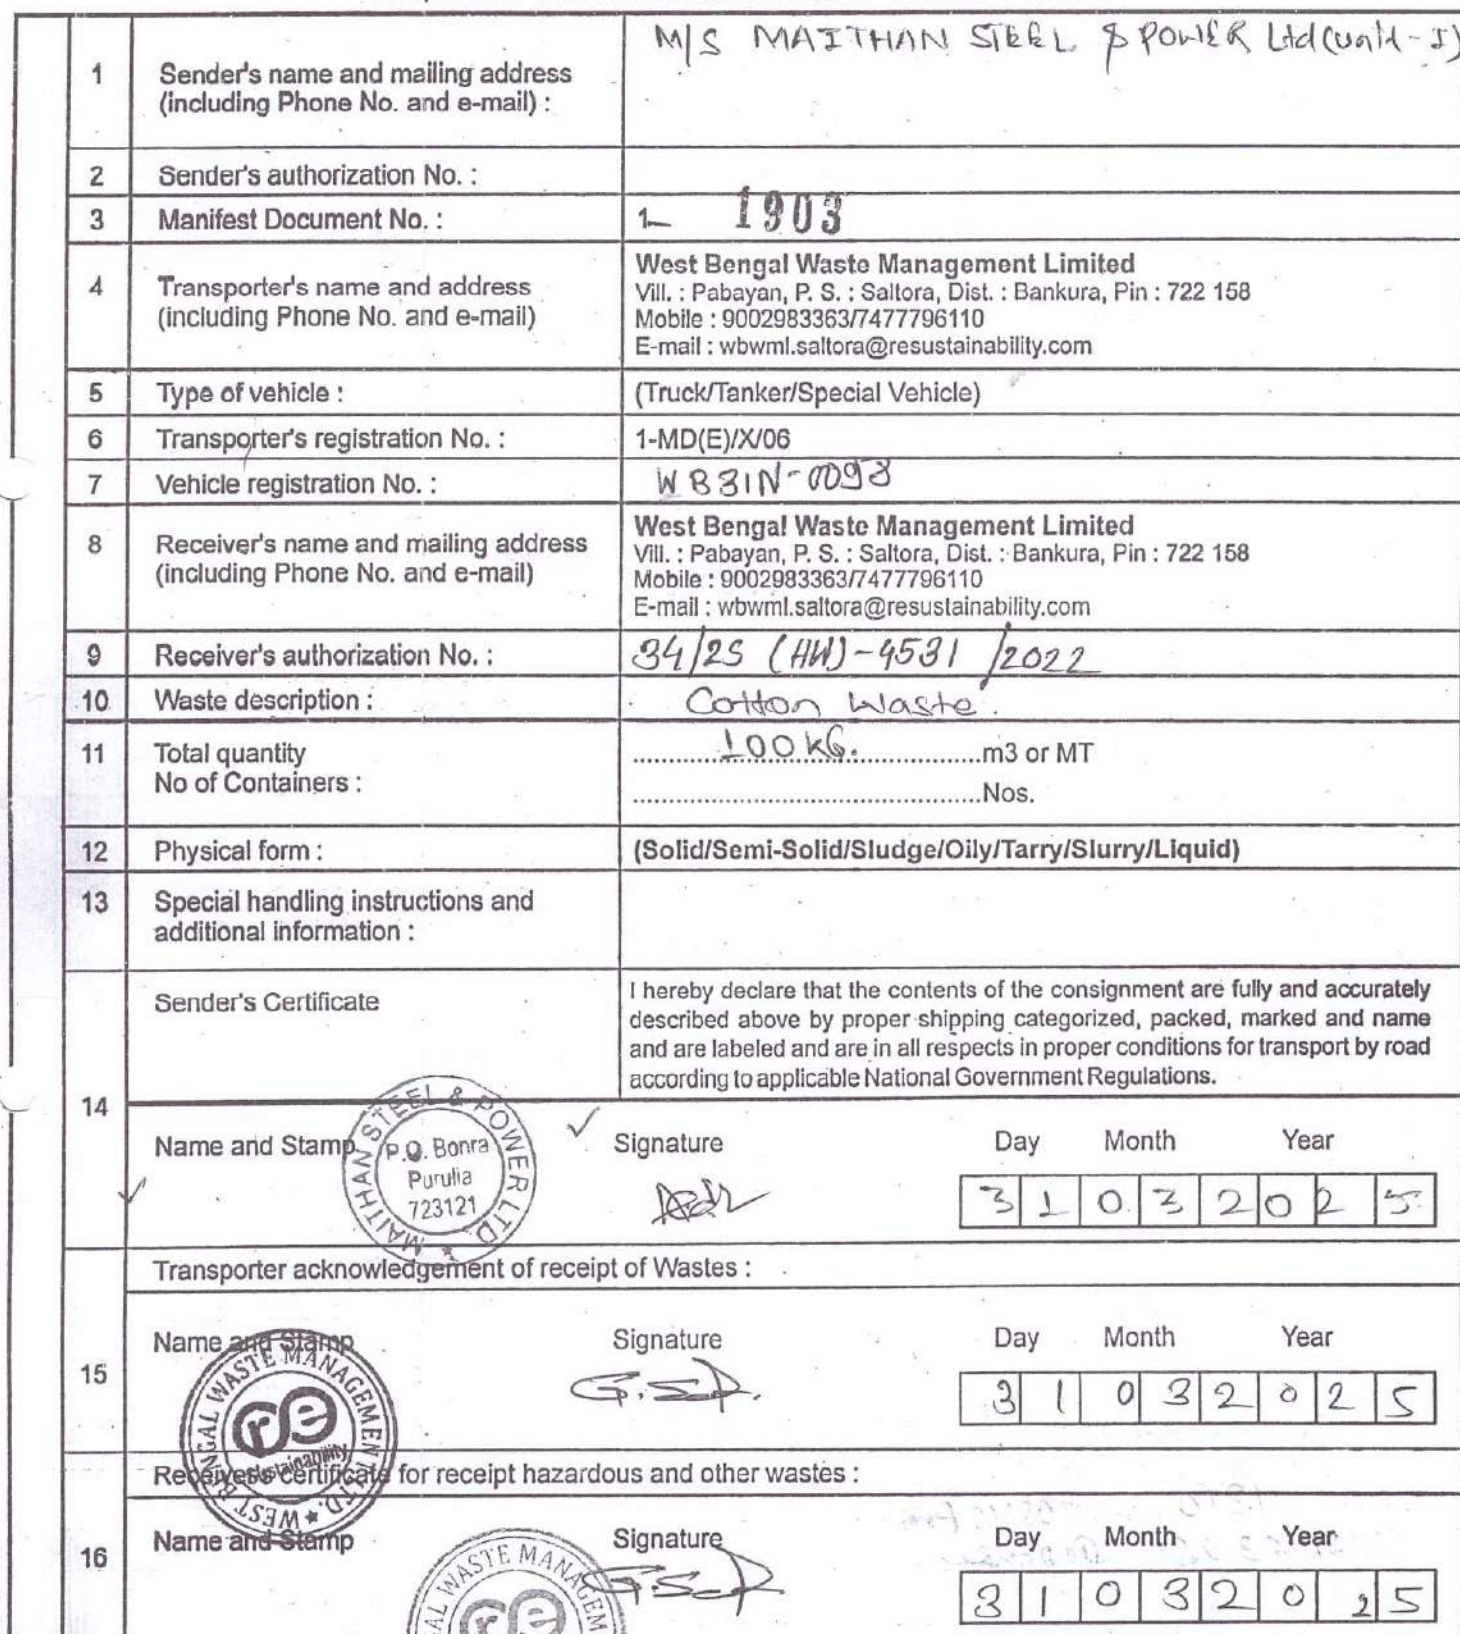 1
Sender's name and mailing address
(including Phone No. and e-mail) :
M/S MAITHAN STEEL & POWER Ltd (Unit-I)
2
Sender's authorization No. :
3
Manifest Document No. :
1- 1903
4
Transporter's name and address
(including Phone No. and e-mail)
West Bengal Waste Management Limited
Vill. : Pabayan, P. S. : Saltora, Dist. : Bankura, Pin : 722 158
Mobile : 9002983363/7477796110
E-mail : wbwml.saltora@resustainability.com
5
Type of vehicle :
(Truck/Tanker/Special Vehicle)
6
Transporter's registration No. :
1-MD(E)/X/06
7
Vehicle registration No. :
8
Receiver's name and mailing address
(including Phone No. and e-mail)
West Bengal Waste Management Limited
Vill. : Pabayan, P. S. : Saltora, Dist. : Bankura, Pin : 722 158
Mobile : 9002983363/7477796110
E-mail : wbwml.saltora@resustainability.com
9
Receiver's authorization No. :
34/2S (HW)-4531 /2022
10
Waste description :
Cotton Waste.
11
Total quantity
100 KG. m3 or MT
No of Containers :
Nos.
12
Physical form :
(Solid/Semi-Solid/Sludge/Oily/Tarry/Slurry/Liquid)
13
Special handling instructions and
additional information :
14
Sender's Certificate
I hereby declare that the contents of the consignment are fully and accurately
described above by proper shipping categorized, packed, marked and name
and are labeled and are in all respects in proper conditions for transport by road
according to applicable National Government Regulations.
Name and Stamp
MAITHAN STEEL & POWER LTD.
P.O. Bonra
Purulia
723121
Signature
Day Month Year
3 1 0 3 2 0 2 5
15
Transporter acknowledgement of receipt of Wastes :
Name and Stamp
WEST BENGAL WASTE MANAGEMENT LTD.
re
sustainability
Signature
Day Month Year
3 1 0 3 2 0 2 5
16
Receiver's certificate for receipt hazardous and other wastes :
Name and Stamp
WASTE
re
Signature
Day Month Year
3 1 0 3 2 0 2 5